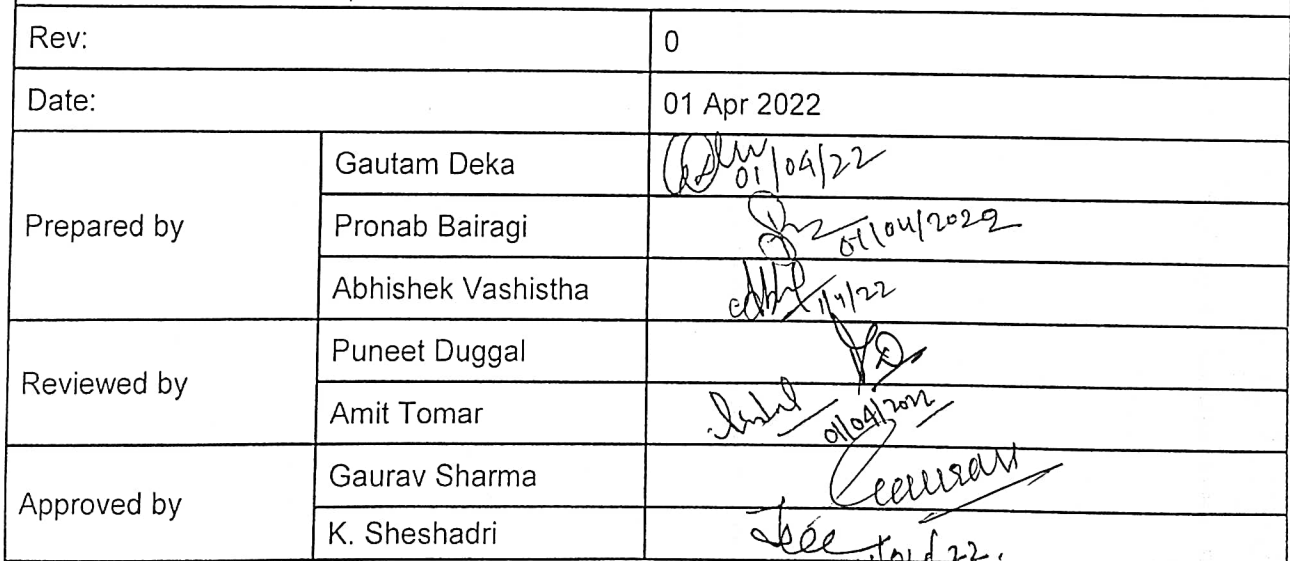 Rev: 0
Date: 01 Apr 2022
Prepared by
Gautam Deka 01/04/22
Pronab Bairagi 01/04/2022
Abhishek Vashistha 1/4/22
Reviewed by
Puneet Duggal
Amit Tomar 01/04/2022
Approved by
Gaurav Sharma Gaurav
K. Sheshadri